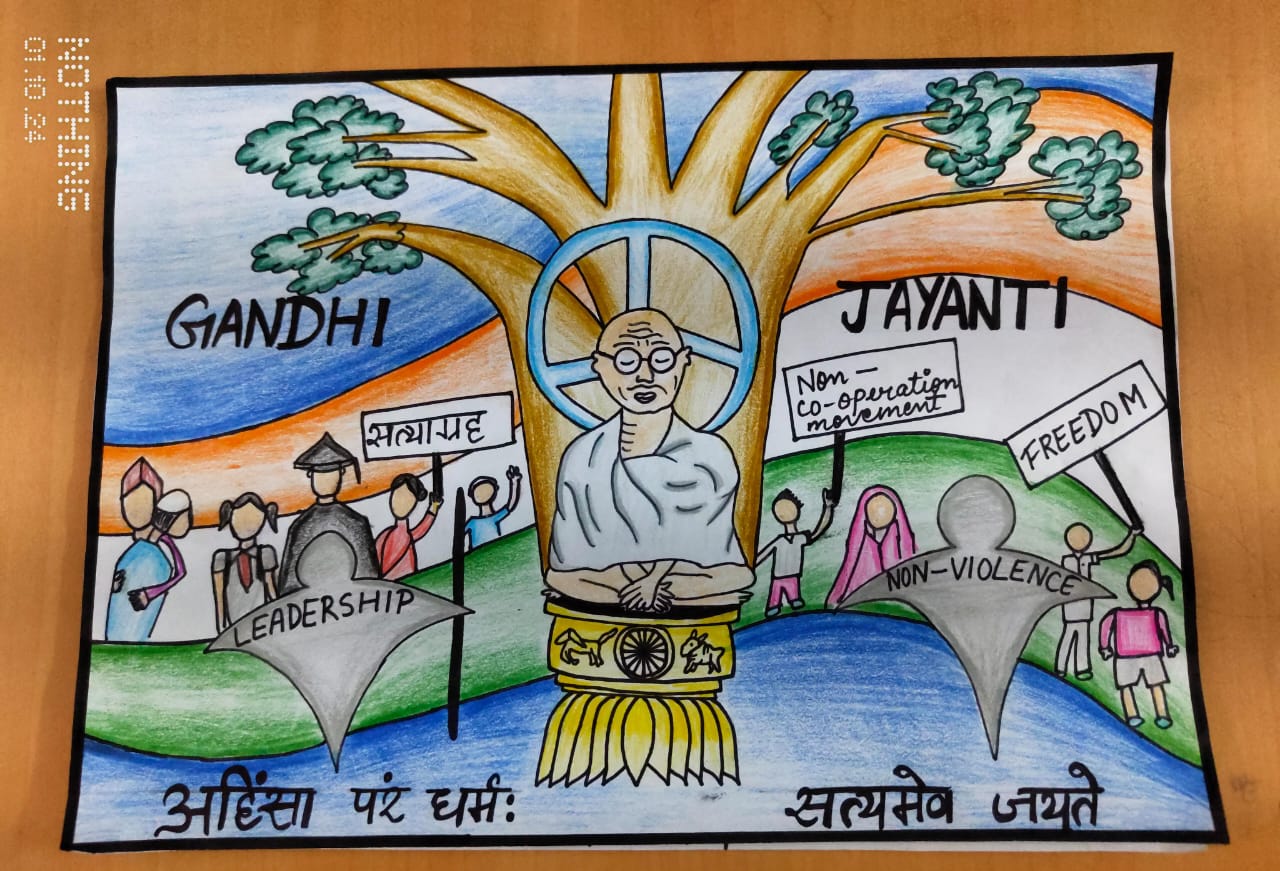 NOTHING
01.10.24
GANDHI
JAYANTI
सत्याग्रह
Non-
co-operation
movement
FREEDOM
LEADERSHIP
NON-VIOLENCE
अहिंसा परं धर्म:
सत्यमेव जयते